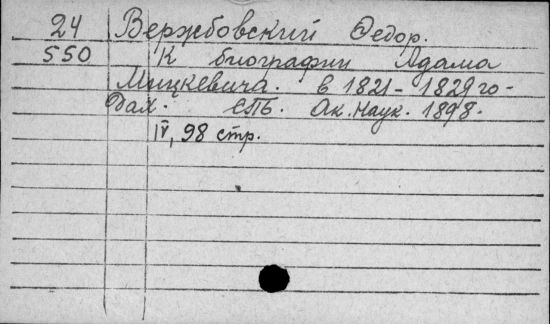 24 Вержбовский Федор.
550 К биографии Адама
Мицкевича. в 1821-1829 го-
дах. СПБ. Ак. Наук. 1898.
IV, 98 стр.